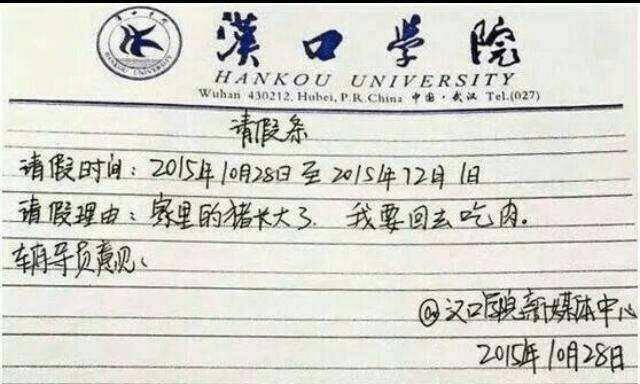 漢口學院
HANKOU UNIVERSITY
HANKOU UNIVERSITY
Wuhan 430212, Hubei, P.R. China 中国·武汉 Tel.(027)
请假条
请假时间：2015年10月28日至2015年12月1日
请假理由：家里的猪长大了，我要回去吃肉。
辅导员意见：
@汉口学院新媒体中心
2015年10月28日